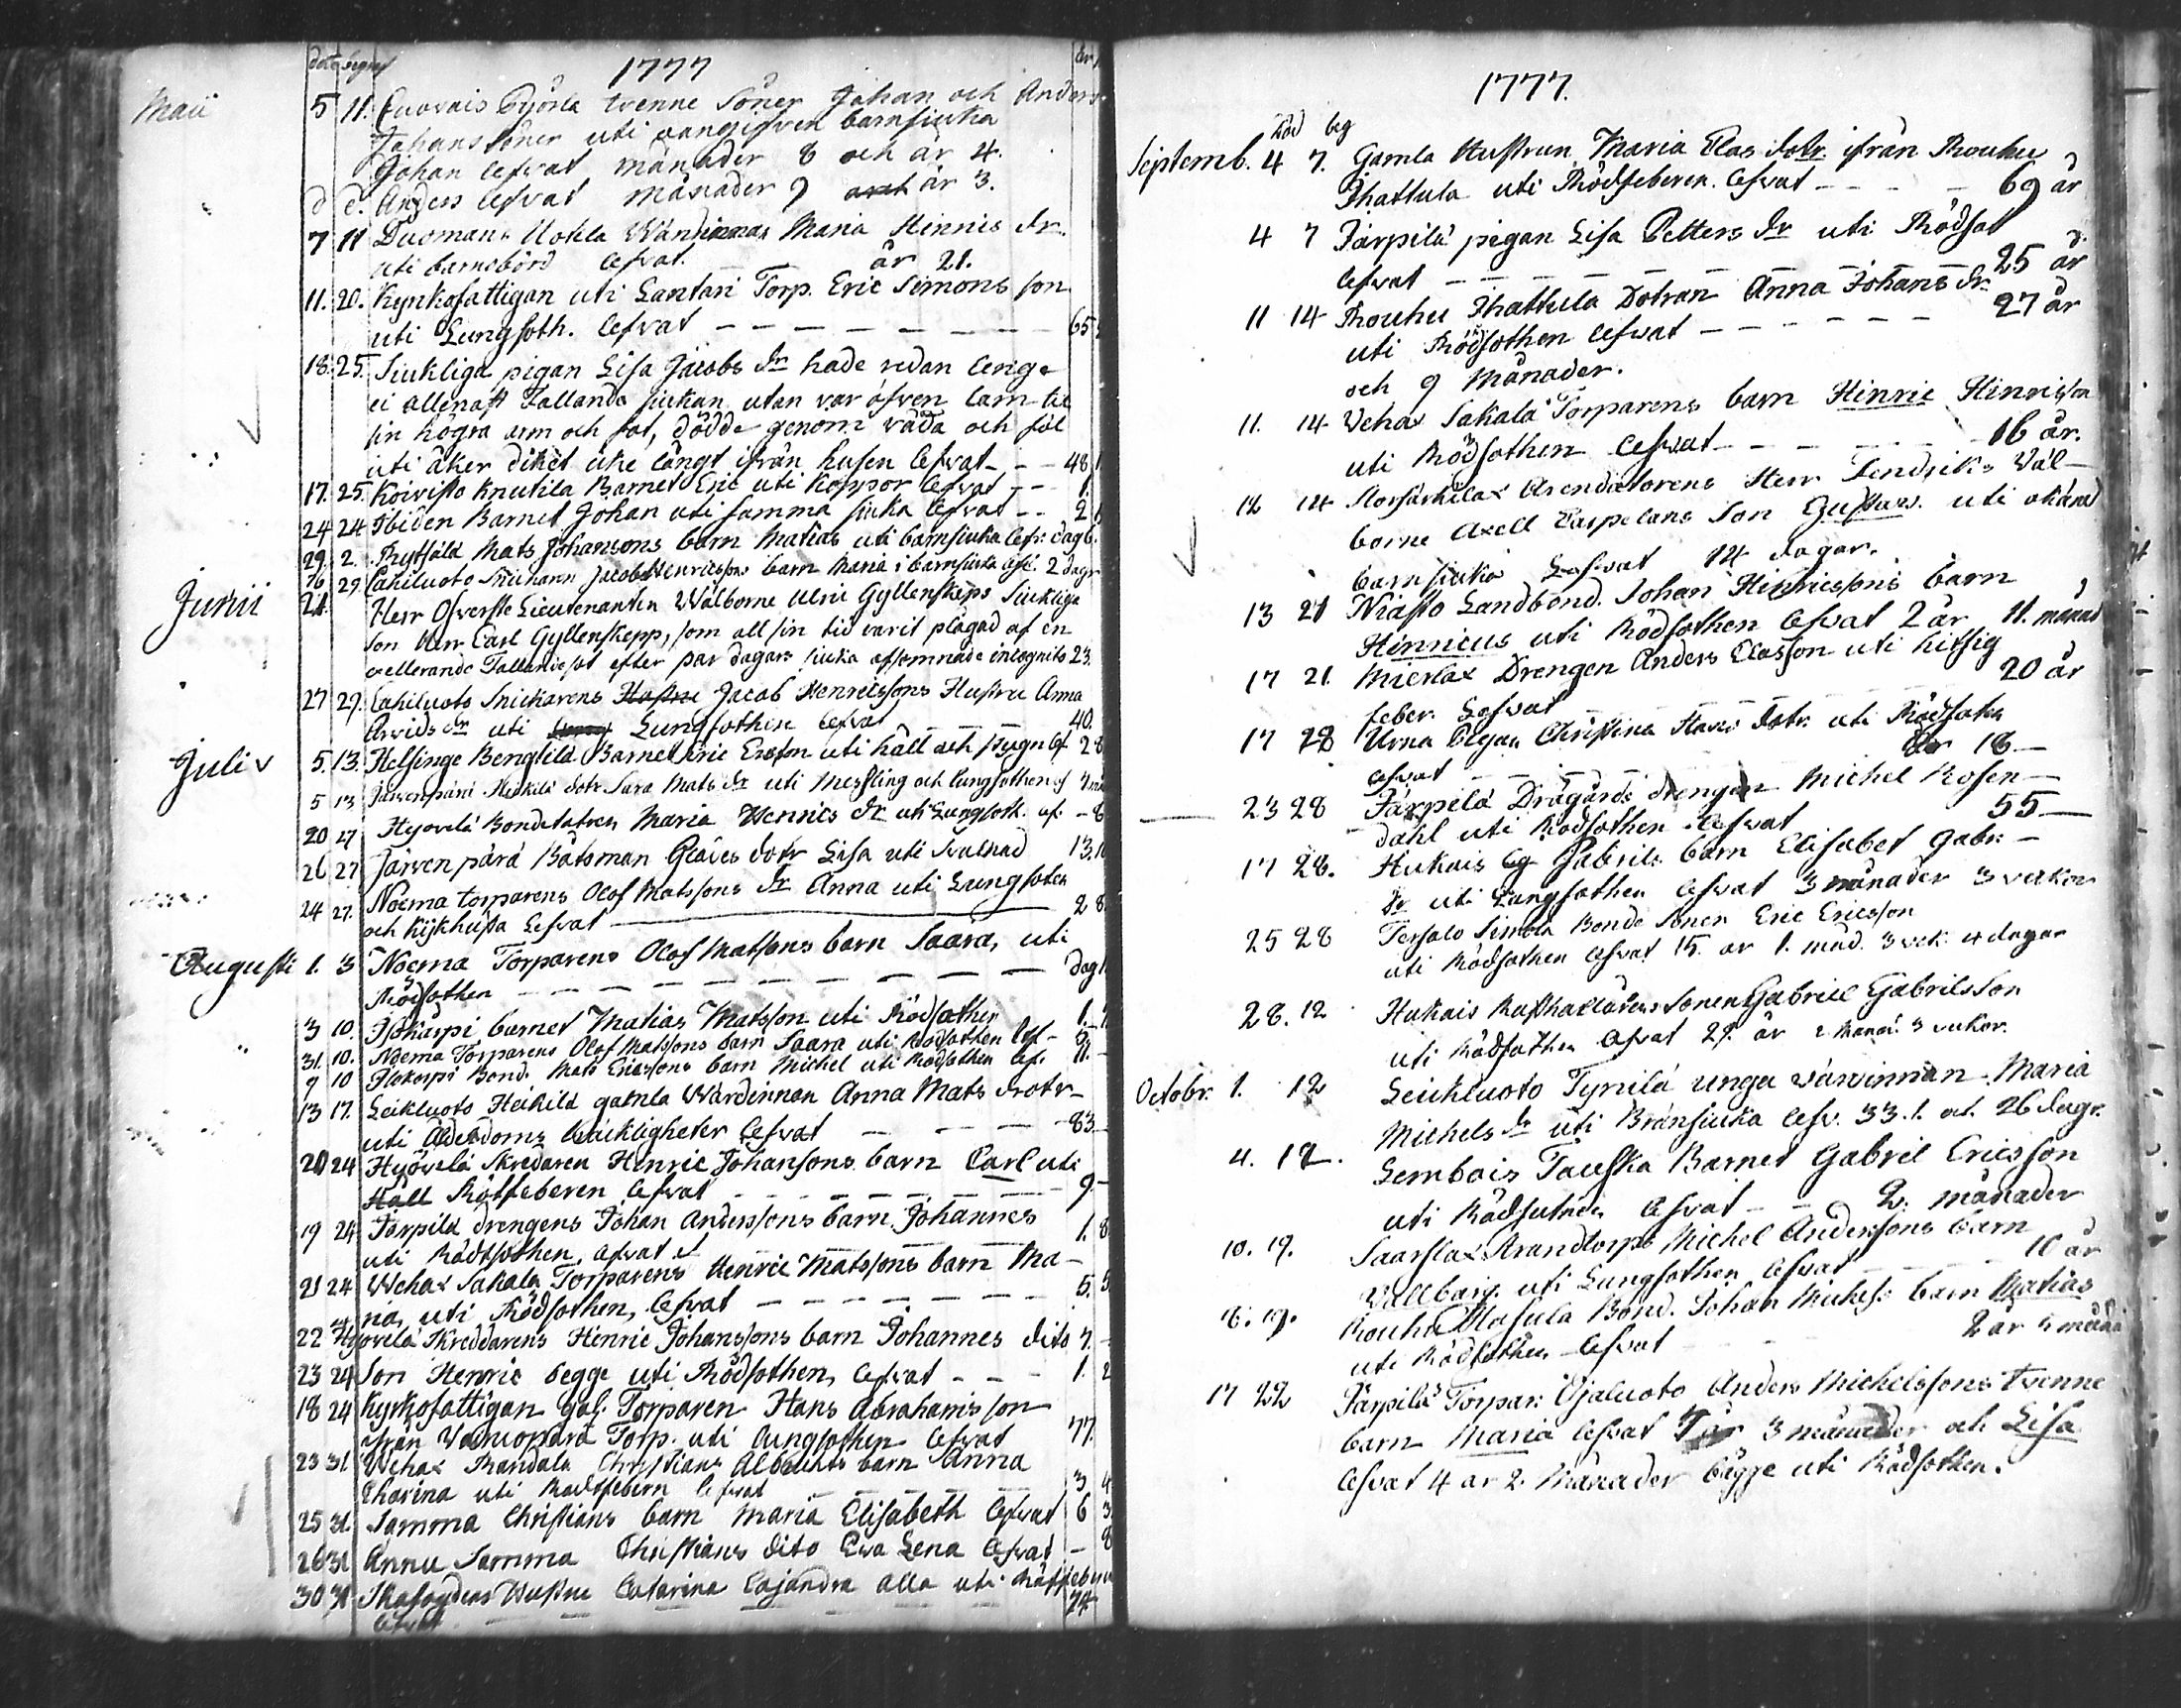 död begraf 1777 år
Maii 5 11. Cuovais Björla tvenne Söner Johan och Anders
Johanssöner uti oangifven barnsiuka
Johan lefvat månader 8 och år 4.
d d. Anders lefvat månader 9 och år 3.
7 11 Duomans Uokla Wärdinnan Maria Hinrics dr
uti barnsbörd lefvat år 21.
11. 20. Kyrkofattigan uti Santari Torp. Eric Simons son
uti Lungsoth. lefvat 65
18. 25. Siukliga pigan Lisa Jacobs dr hade redan lenge
ei allenast Fallande siukan utan var ofven lam til
sin högra arm och fot, dödde genom våda och föl
uti åker diket icke långt ifrån husen lefvat 48
17. 25. Koivisto Knutila Barnet Eric uti Koppor lefvat 1.
24 24 Ibiden Barnet Johan uti samma siuka lefvat 2
29. 2. Mats Johansons barn Matias uti barnsiuka lefv: dag 6.
16 29. Cahiluoto Snickaren Jacob Henricssons barn Maria i barnsiuka 2 dagr
Junii 21. Herr Öfverste Lieutenanten Wälborne Gyllenskeps Siukliga
son Herr Carl Gyllenskepp, som all sin tid varit plågad af en
Fallandesot efter par dagars siuka afsomnade incognito 23.
27 29. Cahiluoto Snickarens Hustru Jacob Henricssons Hustru Anna
Arvids dr uti Lungsothen lefvat 40.
Juli 5. 13. Helsinge Bengtild Barnet Eric Ersson uti håll och stygn lef 28
5 13 Järvenpärä Heikilä dotr Sara Mats dr uti Messling och lungsothen
20 27 Hyövelä Bondedotren Maria Henrics dr uti Lungsoth. lef. – 8
26 27 Järvenpärä Båtsman dotr Lisa uti Svulnad 13.
24 27. Noema torparens Olof Matssons dr Anna uti Lungsoten
och Kijkhusta Lefvat 2 8.
Augusti 1. 3 Noema Torparens Olof Matsons barn Saara, uti
Rödsothen dag
3 10. Isokärpi barnet Matias Matsson uti Rödsothen 1.
31. 10. Noema Torparens Olof Matssons barn Saara uti Rödsothen lef – 5.
9 10 Isokorpi Bond. Mats Ericssons barn Michel uti Rödsothen lef. 11.
13 17. Leikluoto Heikilä gamla Wärdinnan Anna Mats dotr
uti Ålderdoms bräckligheter lefvat 83
20 24 Hyövelä Skredaren Hinric Johansons barn Carl uti
Håll Rötfeberen lefvat 9.
19 24 Jorpilä drengens Johan Anderssons barn Johannes
uti Rödsothen, lefvat 1. 8
21 24 Wehax Sakala Torparens Henric Matssons barn Ma-
ria, uti Rödsothen, lefvat 5. 5
22 Hyövelä Skreddarens Hinric Johanssons barn Johannes dito 7.
23 24 Son Henric begge uti Rödsothen, lefvat 1. 2
18 24 Kyrkofattigan gaf. Torparen Hans Abrahamsson
ifrån Torp. uti Lungsothen lefvat 77.
23 31 Wehax Mandala Christians Albrechts barn Anna
Charina uti Rödsfebern lefvat 3 4
25 31. Samma Christians barn Maria Elisabeth lefvat 6 3
26 31 Annu Samma Christians dito Eva Lena lefvat – 8
30 31 Hustru Catarina Cajandra alla uti Rötfebern
lefvat 24
1777.
död beg
Septemb. 4 7. Gamla Hustrun Maria Clas dotr ifrån Rouhu
Thattula uti Rödfeberen. lefvat 69 år
4 7 Järpilä pigan Lisa Petters dr uti Rödsot
lefvat 25 år
11 14 Rouhu Thattula Dotran Anna Johans dr
uti Rödsothen lefvat 27 år
och 9 månader.
11. 14. Vehax Sakala Torparens barn Hinric Hinricsson
uti Rödsothen lefvat 16 år.
12 14 Storsarkilax Arendatorens Herr Fendriks Väl-
borne Axell Carpelans Son Gustav. uti okänd
barnsiuka Lefvat 14 dagar.
13 21 Niasto Landbond. Johan Hinricssons barn
Hinricus uti Rödsothen lefvat 2 år 11. månad
17 21. Mierlax Drengen Anders Classon uti hitsig
feber. Lefvat 20 år
17 28 Urna Pigan Christina dotr. uti Rödsoten
lefvat år 18
23 28 Järpilä Drägårds drengen Michel Rosen-
dahl uti Rödsothen lefvat 55
17 28. Hukais Gabriels barn Elisabet Gabr:
dr uti Lungsothen lefvat 3 månader 3 veckor
25 28 Tersalo Simola Bonde Sonen Eric Ericsson
uti Rödsothen lefvat 15. år 1. mnd. 3 vek. 4 dagar
28. 12 Hukais Rusthållarens Sonen Gabriel Gabrielsson
uti Rödsothen lefvat 29. år 2 Månad. 3 vukor.
Octobr. 1. 12 Leikluoto Tynilä unga värdinnan Maria
Michels dr uti Bränsiuka lefv. 33. 1. och 26 dagr.
4. 12. Lembois Tauska Barnet Gabriel Ericsson
uti Rödsothen lefvat 2. månader
10. 19. Saarslax Strandtorps Michel Anderssons barn
Wallbarg. uti Lungsothen lefvat 10 år
18. 19. Rouhu Masula Bond. Johan Michels: barn Matias
uti Rödsothen lefvat 2 år 4 månad
17 22 Järpilä Torpar: Ojaluoto Anders Michelssons tvenne
barn Maria lefvat 7 år 3 månader och Lisa
lefvat 4 år 2. Månader begge uti Rödsothen.